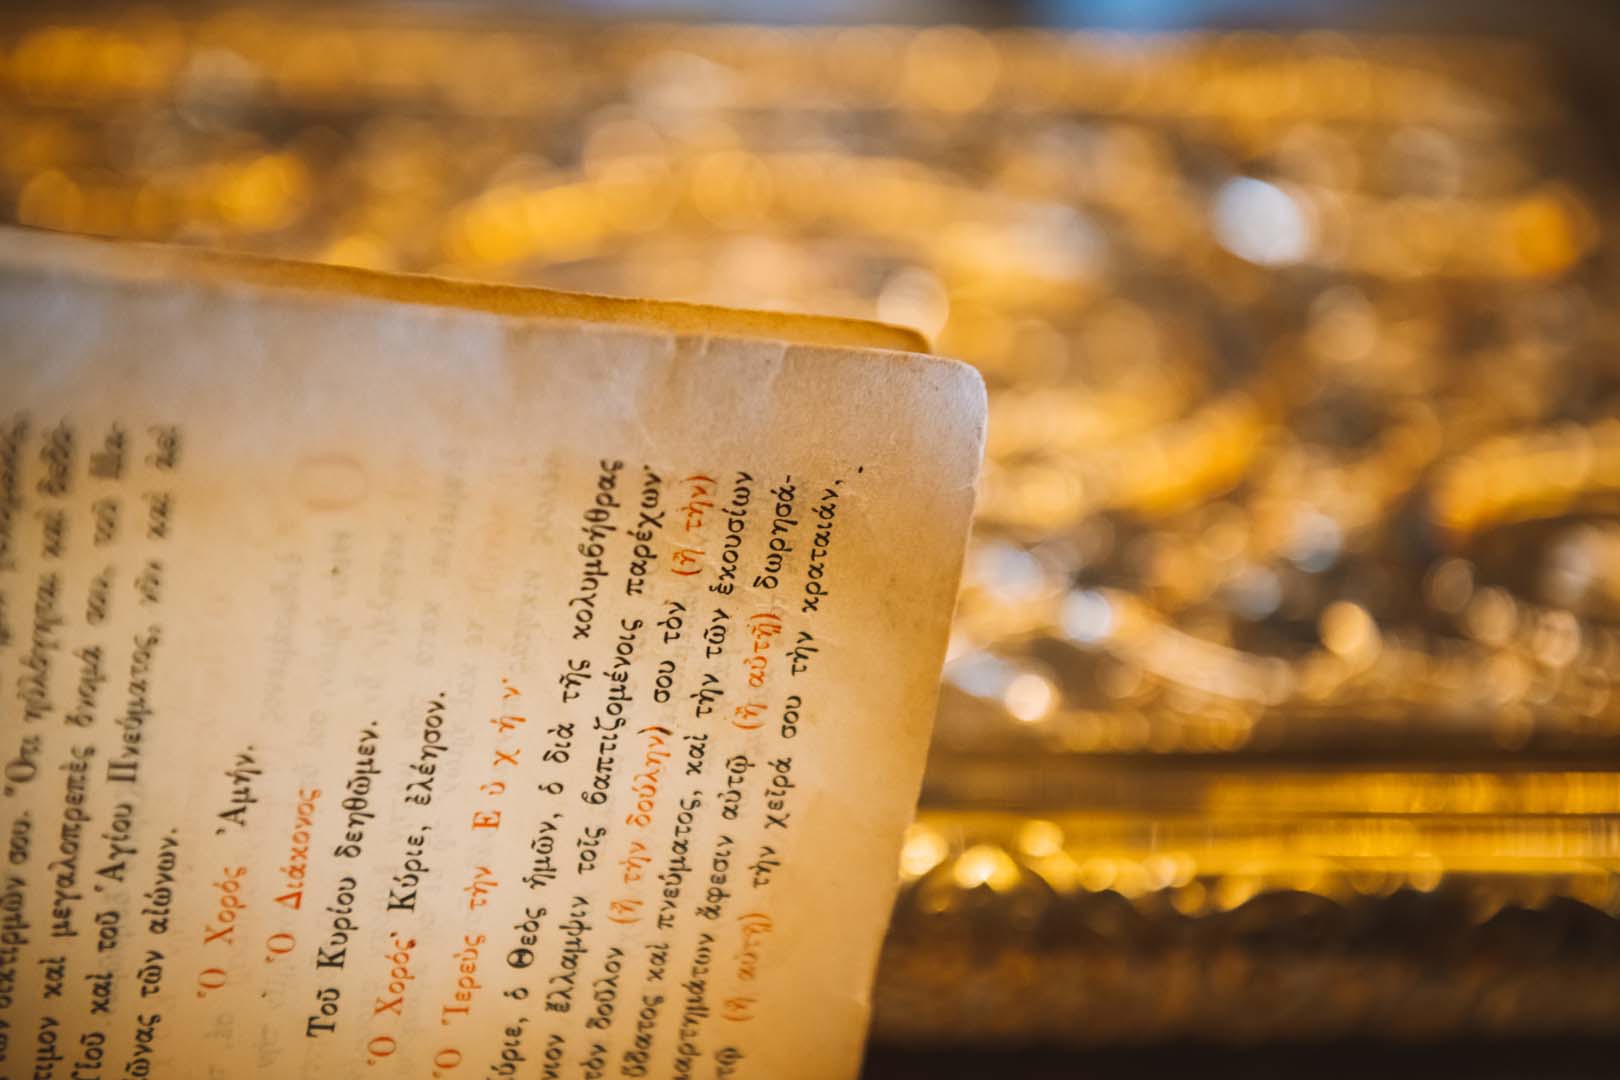 τιμον καὶ μεγαλοπρεπὲς ὄνομά σου, τοῦ Πα-
Υἱοῦ καὶ τοῦ Ἁγίου Πνεύματος, νῦν καὶ ἀεὶ
αἰῶνας τῶν αἰώνων.
Ὁ Χορός Ἀμήν.
Ὁ Διάκονος
Τοῦ Κυρίου δεηθῶμεν.
Ὁ Χορός· Κύριε, ἐλέησον.
Ὁ Ἱερεὺς τὴν Εὐχήν·
ύριε, ὁ Θεὸς ἡμῶν, ὁ διὰ τῆς κολυμβήθρας
νιον ἔλλαμψιν τοῖς βαπτιζομένοις παρέχων·
τὸν δοῦλον (ἢ τὴν δούλην) σου τὸν (ἢ τὴν)
ὕδατος καὶ πνεύματος, καὶ τὴν τῶν ἑκουσίων
μαρτημάτων ἄφεσιν αὐτῷ (ἢ αὐτῇ) δωρησά-
τῷ (ἢ αὐτῇ) τὴν χεῖρά σου τὴν κραταιάν,